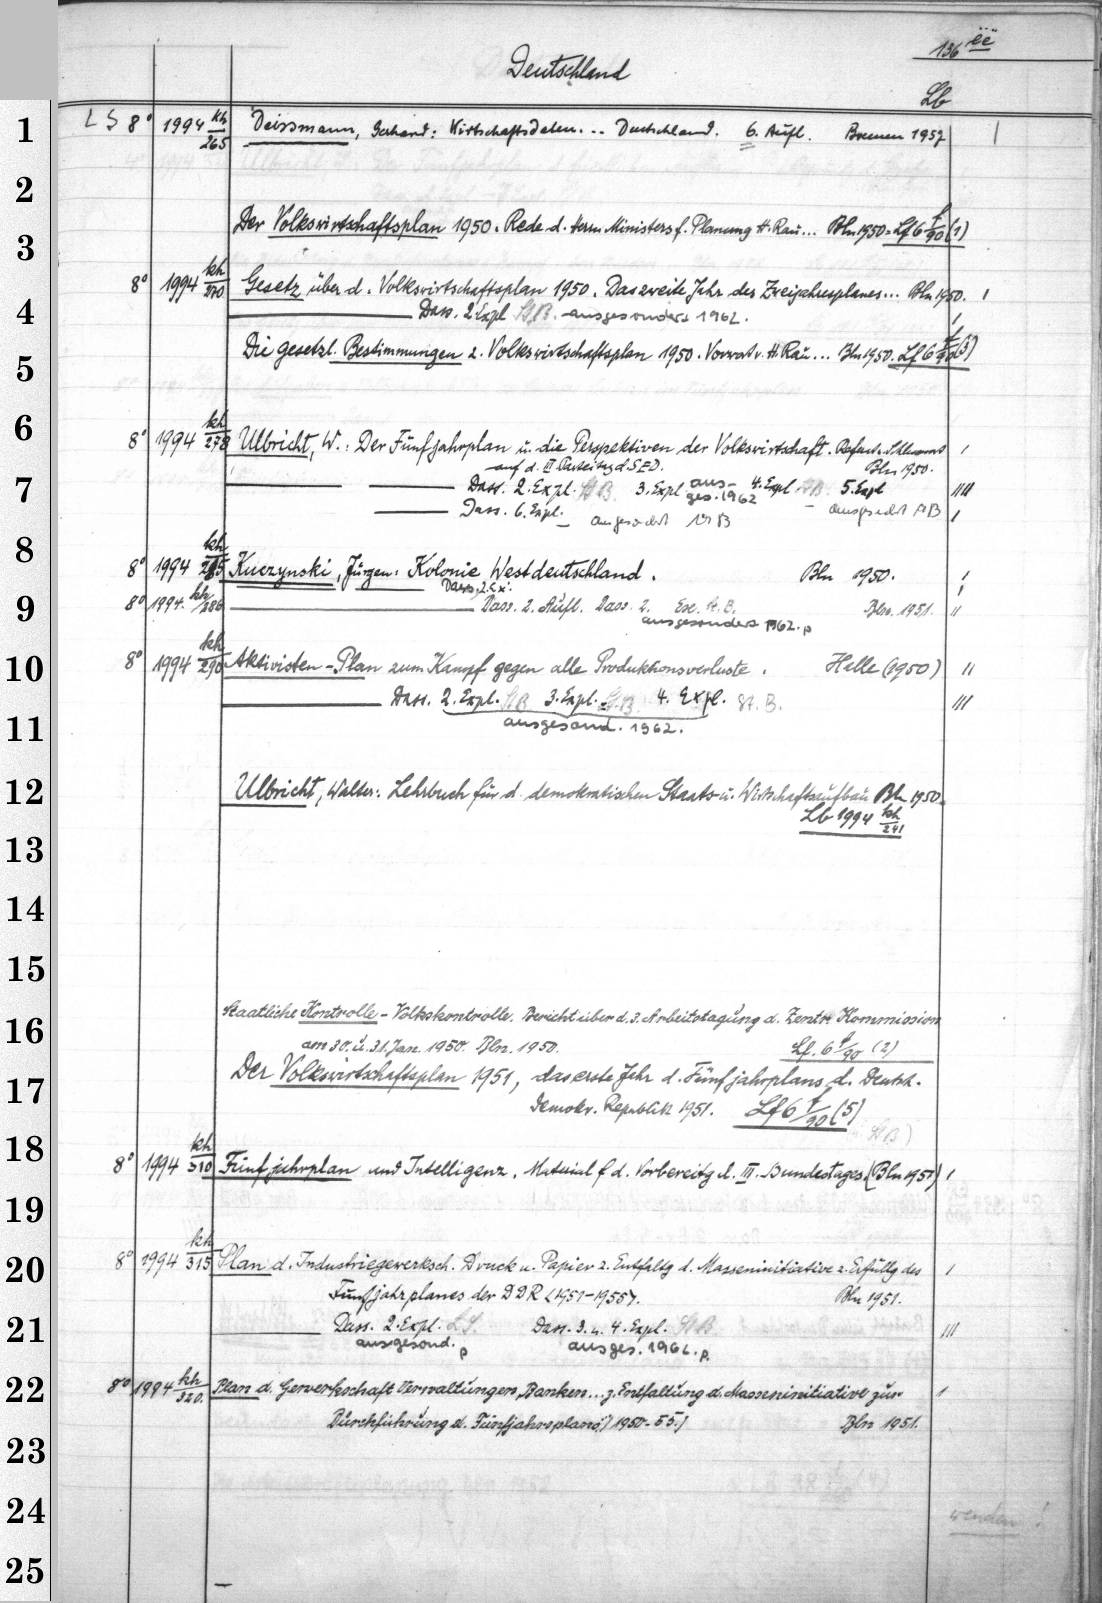 136 ëë
Deutschland
Lb
1 LS 8° 1994 kh/265 Deissmann, Gerhard: Wirtschaftsdaten... Deutschland. 6. Aufl. Bremen 1957 |
2
Der Volkswirtschaftsplan 1950. Rede d. Herrn Ministers f. Planung H. Rau... Bln 1950 = Lf 6 f/90 (1)
3
8° 1994 kh/270 Gesetz über d. Volkswirtschaftsplan 1950. Das zweite Jahr des Zweijahresplanes... Bln 1950. |
4 Dass. 2. Expl StB. ausgesondert 1962. |
Die gesetzl. Bestimmungen z. Volkswirtschaftsplan 1950. Vorwort v. H. Rau... Bln 1950. Lf 6 f/90 (3)
5
6 8° 1994 kh/278 Ulbricht, W.: Der Fünfjahrplan u. die Perspektiven der Volkswirtschaft. Referat u. Schlusswort |
auf d. III Parteitag d. SED. Bln 1950.
7 Dass. 2. Expl. StB. 3. Expl ausges. 1962 4. Expl StB 5. Expl ||||
Dass. 6. Expl. |
8
8° 1994 kh/285 Kuczynski, Jürgen: Kolonie Westdeutschland. Bln 1950. |
Dass. 2. Ex.
9 8° 1994 kh/286 Dass. 2. Aufl. Dass. 2. Ex. St.B. Bln. 1951. ||
ausgesondert 1962. p
10 8° 1994 kh/290 Aktivisten-Plan zum Kampf gegen alle Produktionsverluste. Halle (1950) ||
Dass. 2. Expl. StB 3. Expl. St.B. 4. Expl. St. B. |||
11 ausgesond. 1962.
12 Ulbricht, Walter: Lehrbuch für d. demokratischen Staats- u. Wirtschaftsaufbau Bln 1950.
Lb 1994 kh/241
13
14
15
16 Staatliche Kontrolle - Volkskontrolle. Bericht über d. 3. Arbeitstagung d. Zentr. Kommission
am 30. u. 31. Jan. 1950. Bln. 1950. Lf. 6 f/90 (2)
17 Der Volkswirtschaftsplan 1951, das erste Jahr d. Fünfjahrplans d. Deutsch.
Demokr. Republik 1951. Lf 6 f/90 (5)
StB)
18 8° 1994 kh/310 Fünfjahrplan und Intelligenz. Material f. d. Vorbereitg d. III. Bundestages. (Bln 1951) |
19
20 8° 1994 kh/315 Plan d. Industriegewerksch. Druck u. Papier z. Entfaltg d. Masseninitiative z. Erfüllg des |
Fünfjahrplanes der DDR (1951-1955). Bln 1951.
21 Dass. 2. Expl. LS. Dass. 3. u. 4. Expl. StB |||
ausgesond. p ausges. 1962. p.
22 8° 1994 kh/320. Plan d. Gewerkschaft Verwaltungen, Banken... z. Entfaltung d. Masseninitiative zur |
Durchführung d. Fünfjahrsplans (1950-55.) Bln 1951.
23
24 wenden!
25